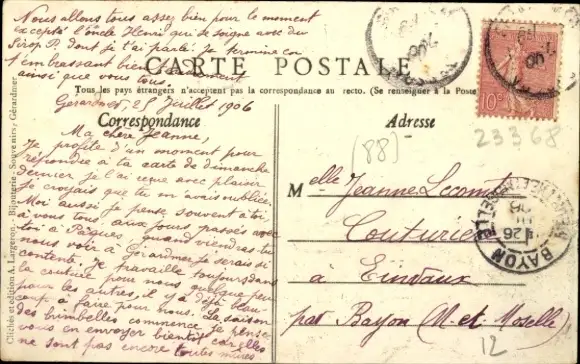 Nous allons tous assez bien pour le moment
excepté l'oncle Henri qui se soigne avec du
Sirop R dont je t'ai parlé. Je termine en
t'embrassant bien
ainsi que vous tous.
CARTE POSTALE
Tous les pays étrangers n'acceptent pas la correspondance au recto. (Se renseigner à la Poste
Gérardmer, 25 Juillet 1906
Correspondance
Ma chère Jeanne,
Je profite d'un moment pour
répondre à ta carte de dimanche
dernier, je l'ai reçue avec plaisir
Je croyais que tu m'avais oubliée.
Moi aussi je pense souvent à toi
à vous tous, aux jours passés avec
toi à Pâques, quand viendras-tu
nous voir à Gérardmer je serais si
contente. Je travaille toujours dans
la couture pour nous quelque peu
pour les autres, il y a déjà beau-
coup à faire pour nous. La saison
des brimbelles commence, je pense
vous en envoyer bientôt car elles
ne sont pas encore toutes mûres
Clichés et édition A. Largeron. - Bijouterie-Souvenirs, Gérardmer
Adresse
(88)
23368
10c
Melle Jeanne Lecomte
Couturière
à Einvaux
par Bayon (M. et Moselle)
BAYON
26
12